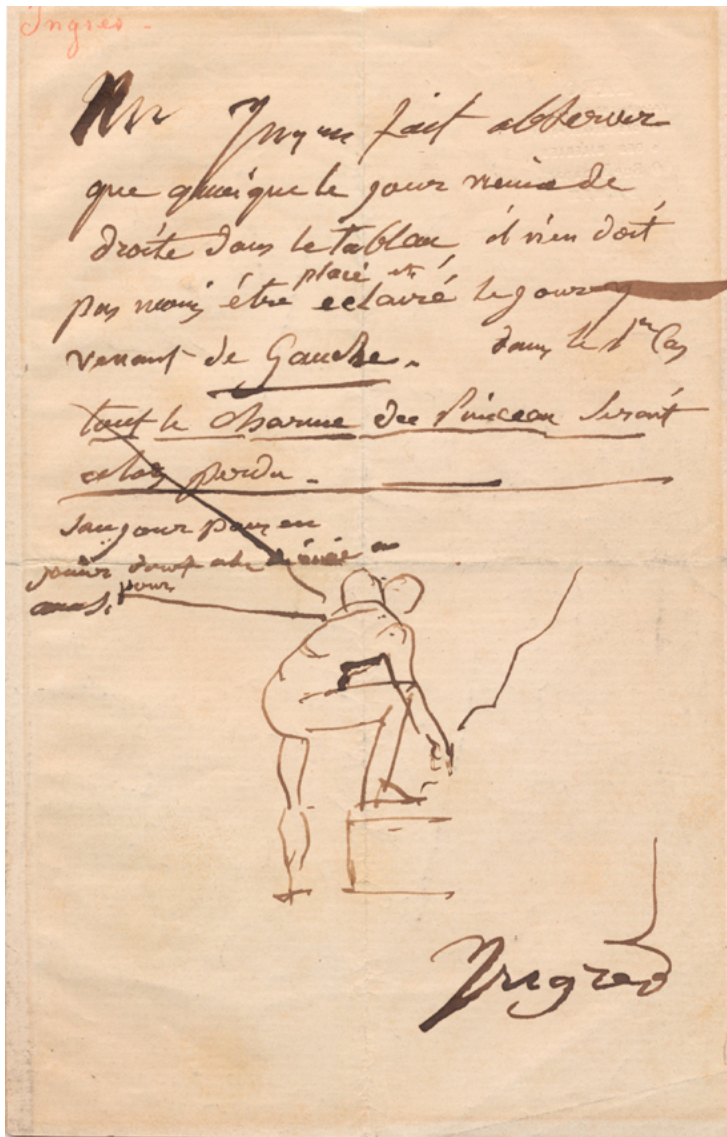 Ingres -
Mr Ingres fait observer
que quoique le jour vienne de
droite dans le tableau, il n'en doit
pas moins être placé et éclairé le jour
venant de Gauche. dans le 1er Cas
tout le charme du Pinceau serait
alors perdu.
sans jour pour en
jouir dont
pour
Ingres